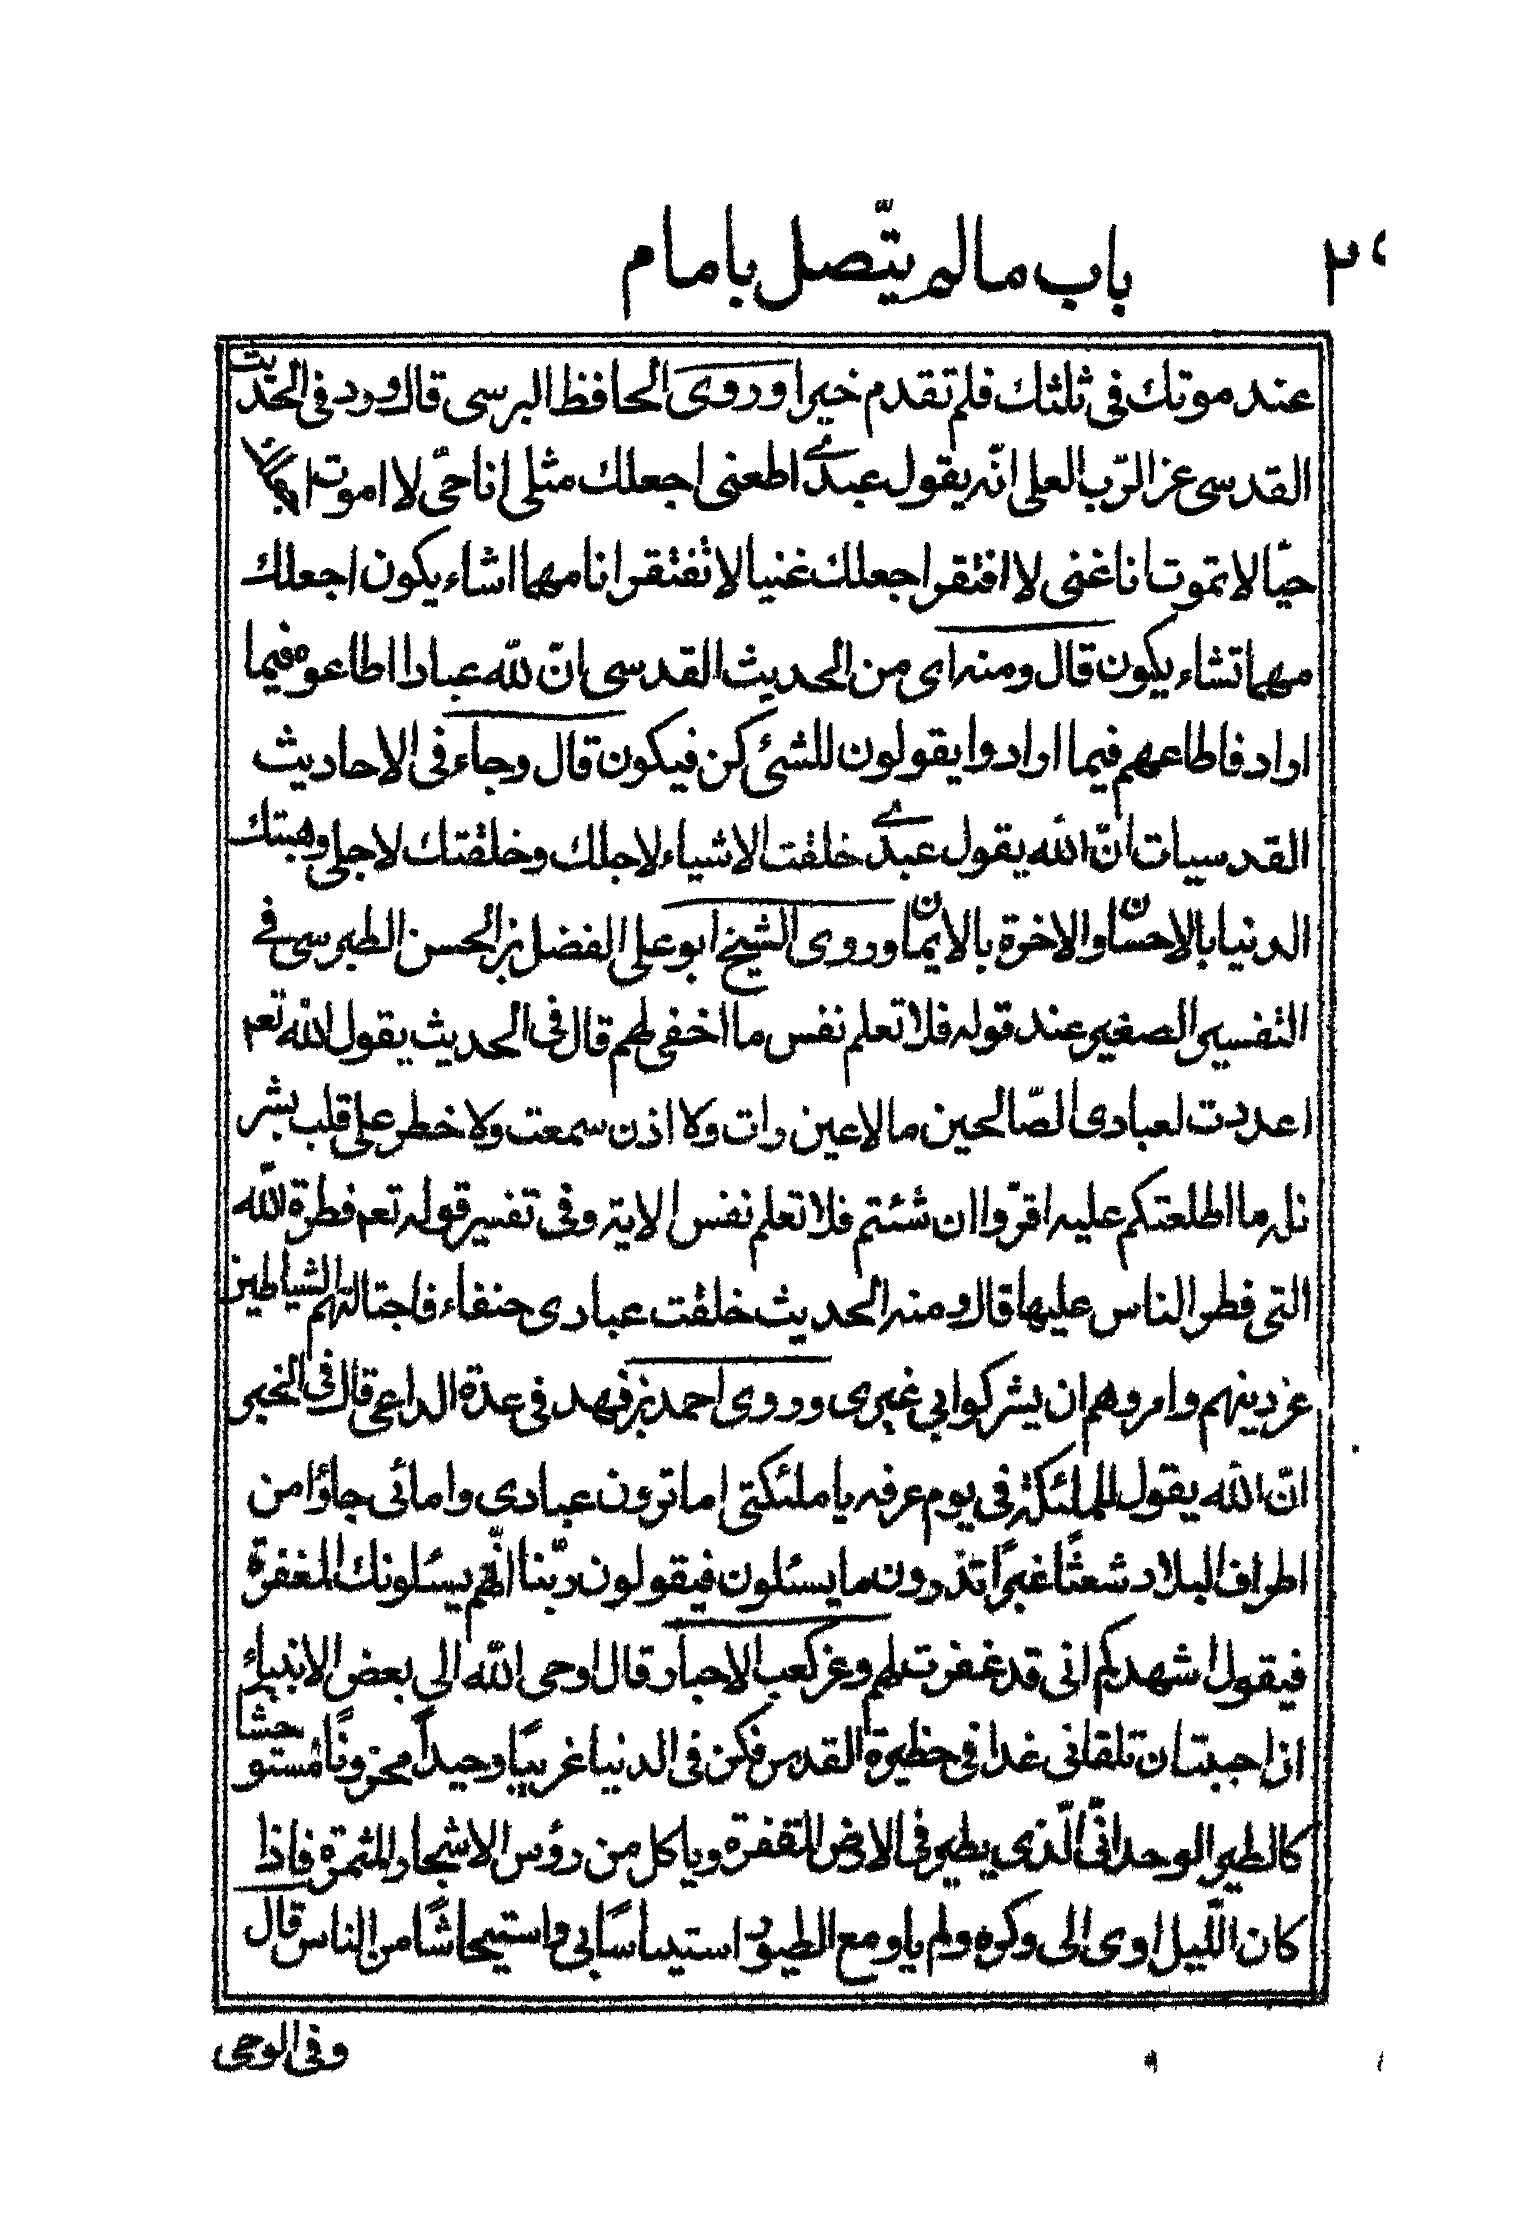 باب ما لم يتّصل بامام
عند موتك في ثلثك فلم تقدم خيرا وروى الحافظ البرسى قال ورد فى الحديث
القدسى عز الرّب العلى انّه يقول عبدى اطعنى اجعلك مثلى انا حىّ لا اموت
حيّا لا تموت انا غنى لا افتقر اجعلك غنيا لا تفتقر انا مهما اشاء يكون اجعلك
مهما تشاء يكون قال ومنه اى من الحديث القدسى انّ لله عبادا اطاعوه فيما
اراد فاطاعهم فيما ارادوا يقولون للشىء كن فيكون قال وجاء فى الاحاديث
القدسيات انّ الله يقول عبدى خلقت الاشياء لاجلك وخلقتك لاجلى وهبتك
الدنيا بالاحسان والاخرة بالايمان وروى الشيخ ابو على الفضل بن الحسن الطبرسى فى
التفسير الصغير عند قوله فلا تعلم نفس ما اخفى لهم قال فى الحديث يقول الله تعم
اعددت لعبادى الصّالحين ما لا عين رات ولا اذن سمعت ولا خطر على قلب بشر
بله ما اطلعتكم عليه اقرّوا ان شئتم فلا تعلم نفس الاية وفى تفسير قوله تعم فطرة الله
التى فطر الناس عليها قال ومنه الحديث خلقت عبادى حنفاء فاجتالتهم الشياطين
عن دينهم وامروهم ان يشركوا بى غيرى وروى احمد بن فهد فى عدة الداعى قال فى الخبر
انّ الله يقول للملئكة فى يوم عرفه يا ملئكتى اما ترون عبادى وامائى جاؤا من
اطراف البلاد شعثًا غبرًا اتدرون ما يسئلون فيقولون ربّنا انّهم يسئلونك المغفرة
فيقول اشهدكم انى قد غفرت لهم وعن كعب الاحبار قال اوحى الله الى بعض الانبياء
ان احببت ان تلقانى غدا فى حظيرة القدس فكن فى الدنيا غريبًا وحيدًا محزونًا مستوحشا
كالطير الوحدانّى الّذى يطير فى الارض المقفرة وياكل من رؤس الاشجار المثمرة فاذا
كان اللّيل اوى الى وكره ولم ياو مع الطيور استيناسًا بى واستيحاشًا من الناس قال
وفى الوحى